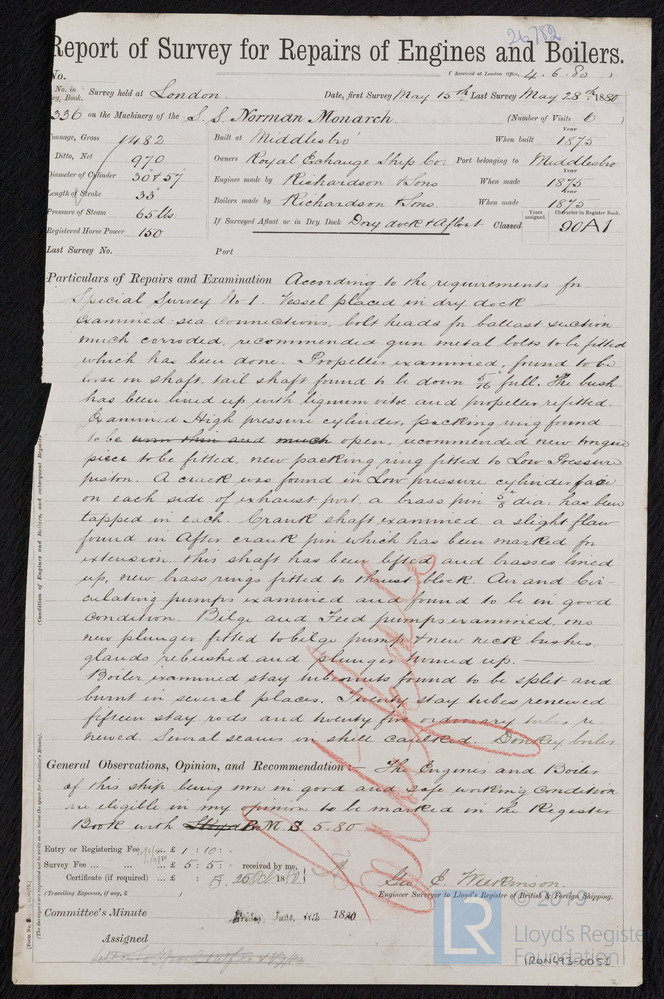 26782
Report of Survey for Repairs of Engines and Boilers.
No.
(Received at London Office, 4.6.80)
No. in Reg. Book. Survey held at London Date, first Survey May 15th Last Survey May 28th 1880
336 on the Machinery of the S.S. Norman Monarch (Number of Visits 6)
Tonnage, Gross 1482 Built at Middlesbro' When built Year 1875
Ditto, Net 970 Owners Royal Exchange Ship Co. Port belonging to Middlesbro
Diameter of Cylinder 30" & 57" Engines made by Richardson & Sons When made Year 1875
Length of Stroke 33" Boilers made by Richardson & Sons When made Year 1875
Pressure of Steam 65 lbs If Surveyed Afloat or in Dry Dock Dry dock & Afloat Classed Years assigned. Character in Register Book. 90A1
Registered Horse Power 150
Last Survey No. Port
Particulars of Repairs and Examination According to the requirements for
Special Survey No 1. Vessel placed in dry dock
Examined sea connections, bolt heads for ballast suction
much corroded, recommended gun metal bolts to be fitted
which has been done. Propeller examined, found to be
loose on shaft, tail shaft found to be down 5/16 full. The bush
has been lined up with lignum vitæ and propeller refitted.
Examined High pressure cylinder, packing ring found
to be worn thin and much open, recommended new tongue
piece to be fitted, new packing ring fitted to Low Pressure
piston. A crack was found in Low pressure cylinder face
on each side of exhaust port, a brass pin 5/8" dia. has been
tapped in each. Crank shaft examined a slight flaw
found in After crank pin which has been marked for
extension, this shaft has been lifted and brasses lined
up, new brass rings fitted to thrust block. Air and Cir-
culating pumps examined and found to be in good
condition. Bilge and Feed pumps examined, one
new plunger fitted to bilge pump & new neck bushes,
glands rebushed and plunger turned up.
Boiler examined stay tubes found to be split and
burnt in several places. Twenty stay tubes renewed
fifteen stay rods and twenty five ordinary tubes re-
newed. Several seams in shell caulked. Donkey boiler
General Observations, Opinion, and Recommendation The Engines and Boiler
of this ship being now in good and safe working condition
are eligible in my opinion to be marked in the Register
Book with M.S. 5.80
Entry or Registering Fee ... £ 1 : 10 :
Survey Fee ... £ 5 : 5 : received by me,
Certificate (if required) ... £ : 5
(Travelling Expenses, if any, £ )
Geo. E.
Engineer Surveyor to Lloyd's Register of British & Foreign Shipping.
Committee's Minute Friday, June, 11th 1880
Assigned
(Condition of Engines and Boilers, and subsequent Reports
© 2019
LR
Lloyd's Register
Foundation
IRON493-0051